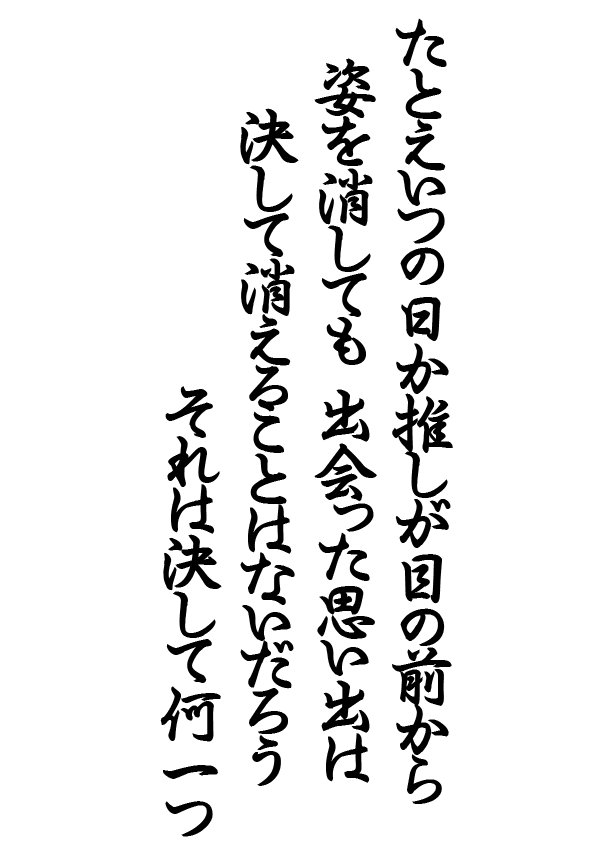 たとえいつの日か推しが目の前から
姿を消しても 出会った思い出は
決して消えることはないだろう
それは決して何一つ